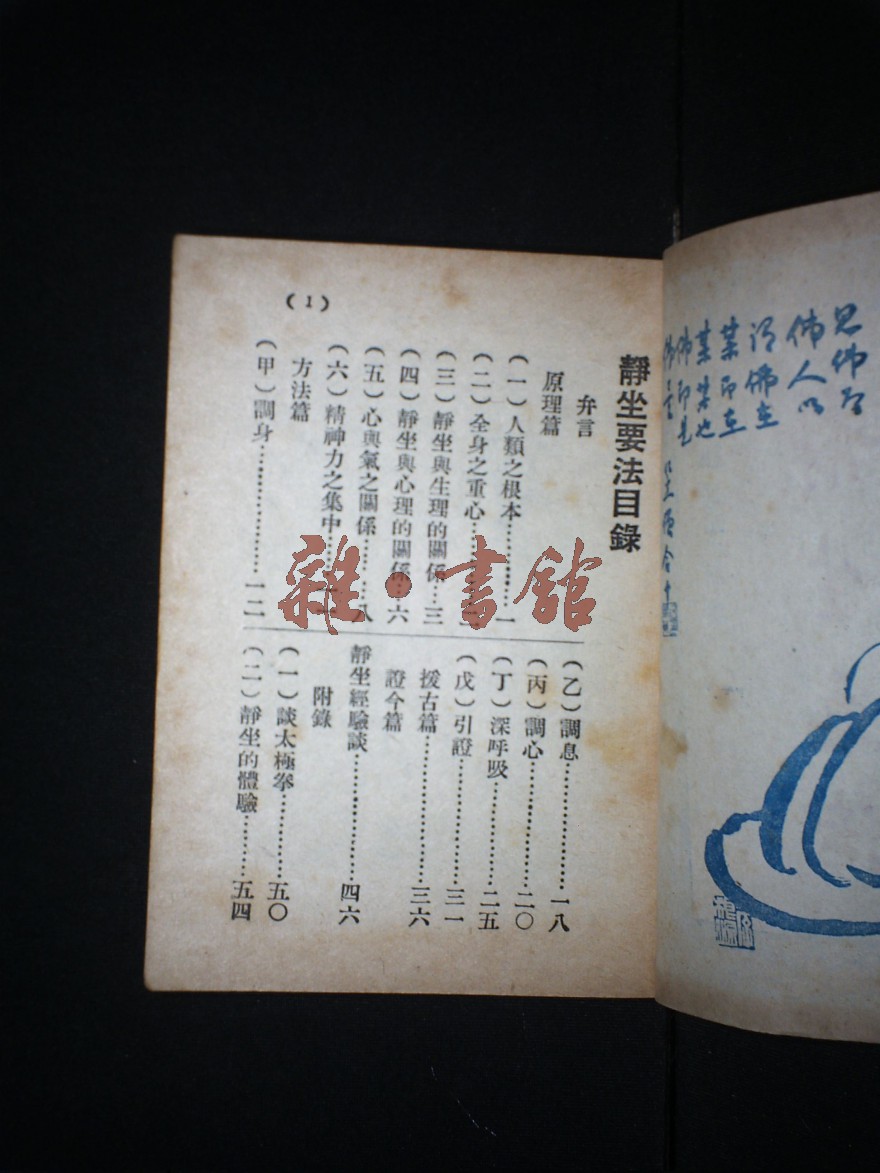 見佛否
佛人以
謂佛在
某即在
某某也
佛即是
靜坐要法目錄
弁言
原理篇
(一)人類之根本…………一
(二)全身之重心…………
(三)靜坐與生理的關係…三
(四)靜坐與心理的關係…六
(五)心與氣之關係………八
(六)精神力之集中………
方法篇
(甲)調身…………………一二
(乙)調息…………………一八
(丙)調心…………………二〇
(丁)深呼吸………………二五
(戊)引證…………………三一
援古篇……………………三六
證今篇
靜坐經驗談………………四六
附錄
(一)談太極拳……………五〇
(二)靜坐的體驗…………五四
(1)
雜·書館